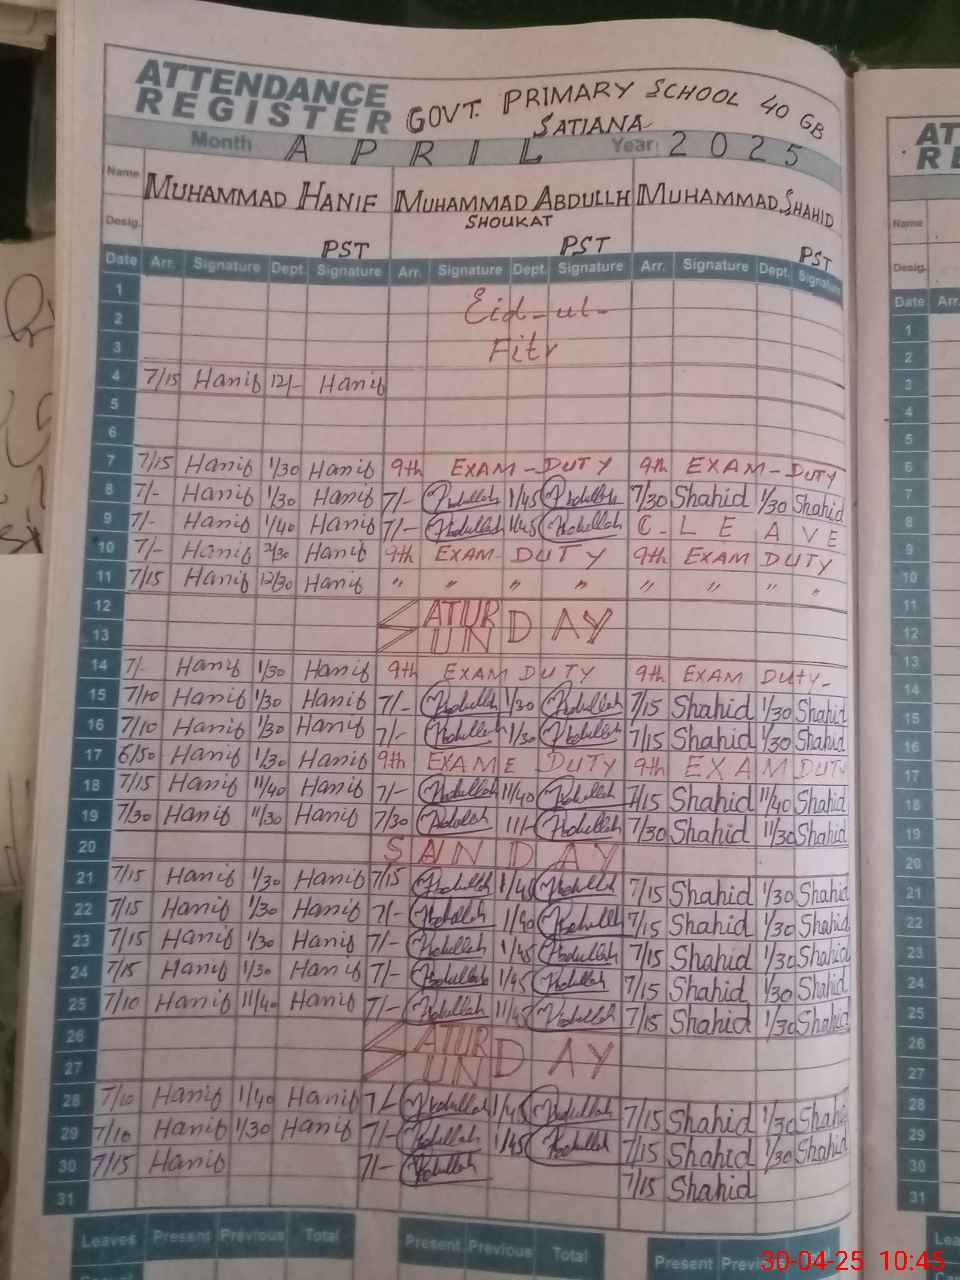 ATTENDANCE REGISTER GOVT. PRIMARY SCHOOL 40 GB
SATIANA
Month APRIL Year: 2025
Name MUHAMMAD HANIF MUHAMMAD ABDULLH MUHAMMAD SHAHID
SHOUKAT
Desig. PST PST PST
Date Arr. Signature Dept. Signature Arr. Signature Dept. Signature Arr. Signature Dept. Signature
1
2 Eid-ul-
3 Fitr
4 7/15 Hanif 12/- Hanif
5
6
7 7/15 Hanif 1/30 Hanif 9th EXAM-DUTY 9th EXAM-DUTY
8 7/- Hanif 1/30 Hanif 7/- Abdullah 1/45 Abdullah 7/30 Shahid 1/30 Shahid
9 7/- Hanif 1/40 Hanif 7/- Abdullah 1/45 Abdullah C-LEAVE
10 7/- Hanif 2/30 Hanif 9th EXAM-DUTY 9th EXAM DUTY
11 7/15 Hanif 12/30 Hanif " " " " " " " "
12 SATURDAY
13 SUNDAY
14 7/- Hanif 1/30 Hanif 9th EXAM DUTY 9th EXAM DUTY-
15 7/10 Hanif 1/30 Hanif 7/- Abdullah 1/30 Abdullah 7/15 Shahid 1/30 Shahid
16 7/10 Hanif 1/30 Hanif 7/- Abdullah 1/30 Abdullah 7/15 Shahid 1/30 Shahid
17 6/50 Hanif 1/30 Hanif 9th EXAME DUTY 9th EXAM DUTY
18 7/15 Hanif 11/40 Hanif 7/- Abdullah 11/40 Abdullah 7/15 Shahid 11/40 Shahid
19 7/30 Hanif 11/30 Hanif 7/30 Abdullah 11/- Abdullah 7/30 Shahid 11/30 Shahid
20 SANDAY
21 7/15 Hanif 1/30 Hanif 7/15 Abdullah 1/45 Abdullah 7/15 Shahid 1/30 Shahid
22 7/15 Hanif 1/30 Hanif 7/- Abdullah 1/40 Abdullah 7/15 Shahid 1/30 Shahid
23 7/15 Hanif 1/30 Hanif 7/- Abdullah 1/45 Abdullah 7/15 Shahid 1/30 Shahid
24 7/15 Hanif 1/30 Hanif 7/- Abdullah 1/45 Abdullah 7/15 Shahid 1/30 Shahid
25 7/10 Hanif 11/40 Hanif 7/- Abdullah 11/45 Abdullah 7/15 Shahid 1/30 Shahid
26 SATURDAY
27 SUNDAY
28 7/10 Hanif 1/40 Hanif 7/- Abdullah 1/45 Abdullah 7/15 Shahid 1/30 Shahid
29 7/10 Hanif 1/30 Hanif 7/- Abdullah 1/45 Abdullah 7/15 Shahid 1/30 Shahid
30 7/15 Hanif 7/- Abdullah 7/15 Shahid
31
Leaves Present Previous Total Present Previous Total Present
30-04-25 10:45
Name
Desig.
Date Arr.
1
2
3
4
5
6
7
8
9
10
11
12
13
14
15
16
17
18
19
20
21
22
23
24
25
26
27
28
29
30
31